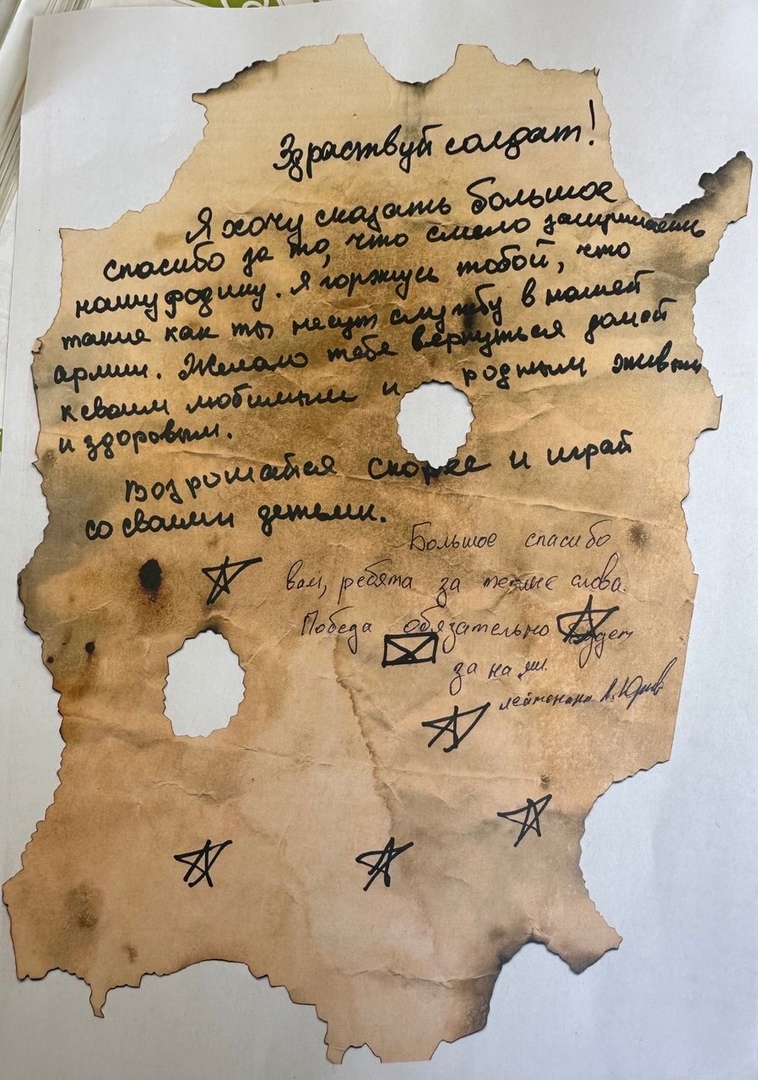 Здраствуй солдат!
Я хочу сказать большое
спасибо за то, что смело защищаешь
нашу родину. Я горжусь тобой, что
такие как ты несут службу в нашей
армии. Желаю тебе вернуться домой
к своим любимым и родным живым
и здоровым.
Возрощайся скорее и играй
со своими детьми.
Большое спасибо
вам, ребята за теплые слова.
Победа обязательно будет
за нами.
лейтенант